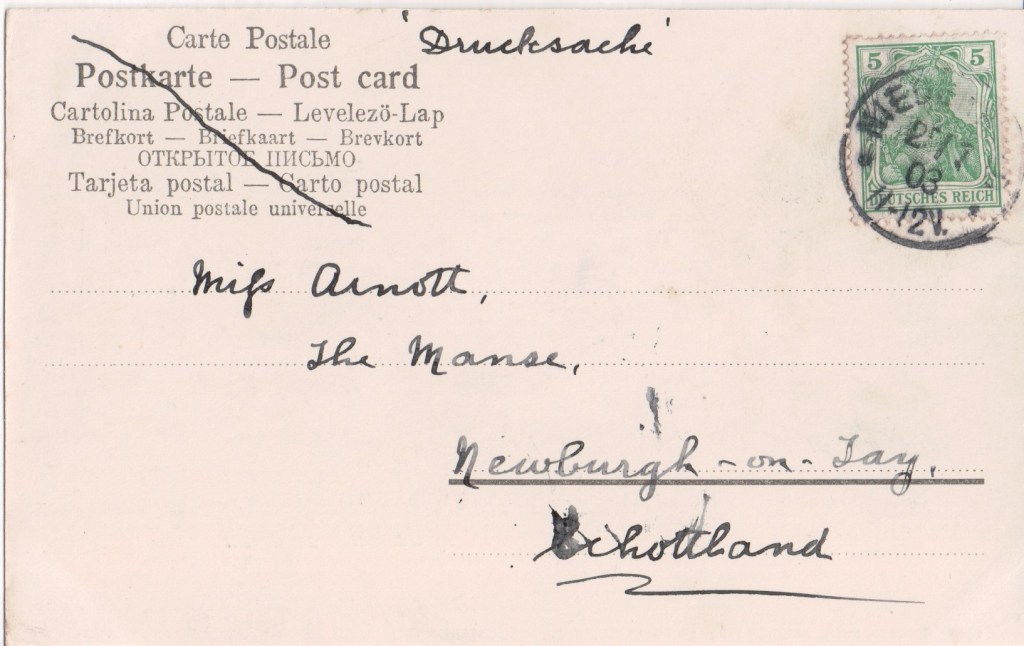 Carte Postale
Postkarte — Post card
Cartolina Postale — Levelező-Lap
Brefkort — Briefkaart — Brevkort
ОТКРЫТОЕ ПИСЬМО
Tarjeta postal — Carto postal
Union postale universelle
'Drucksache'
5 5
DEUTSCHES REICH
03
11-12V.
Miss Arnott,
The Manse,
Newburgh-on-Tay.
Schottland